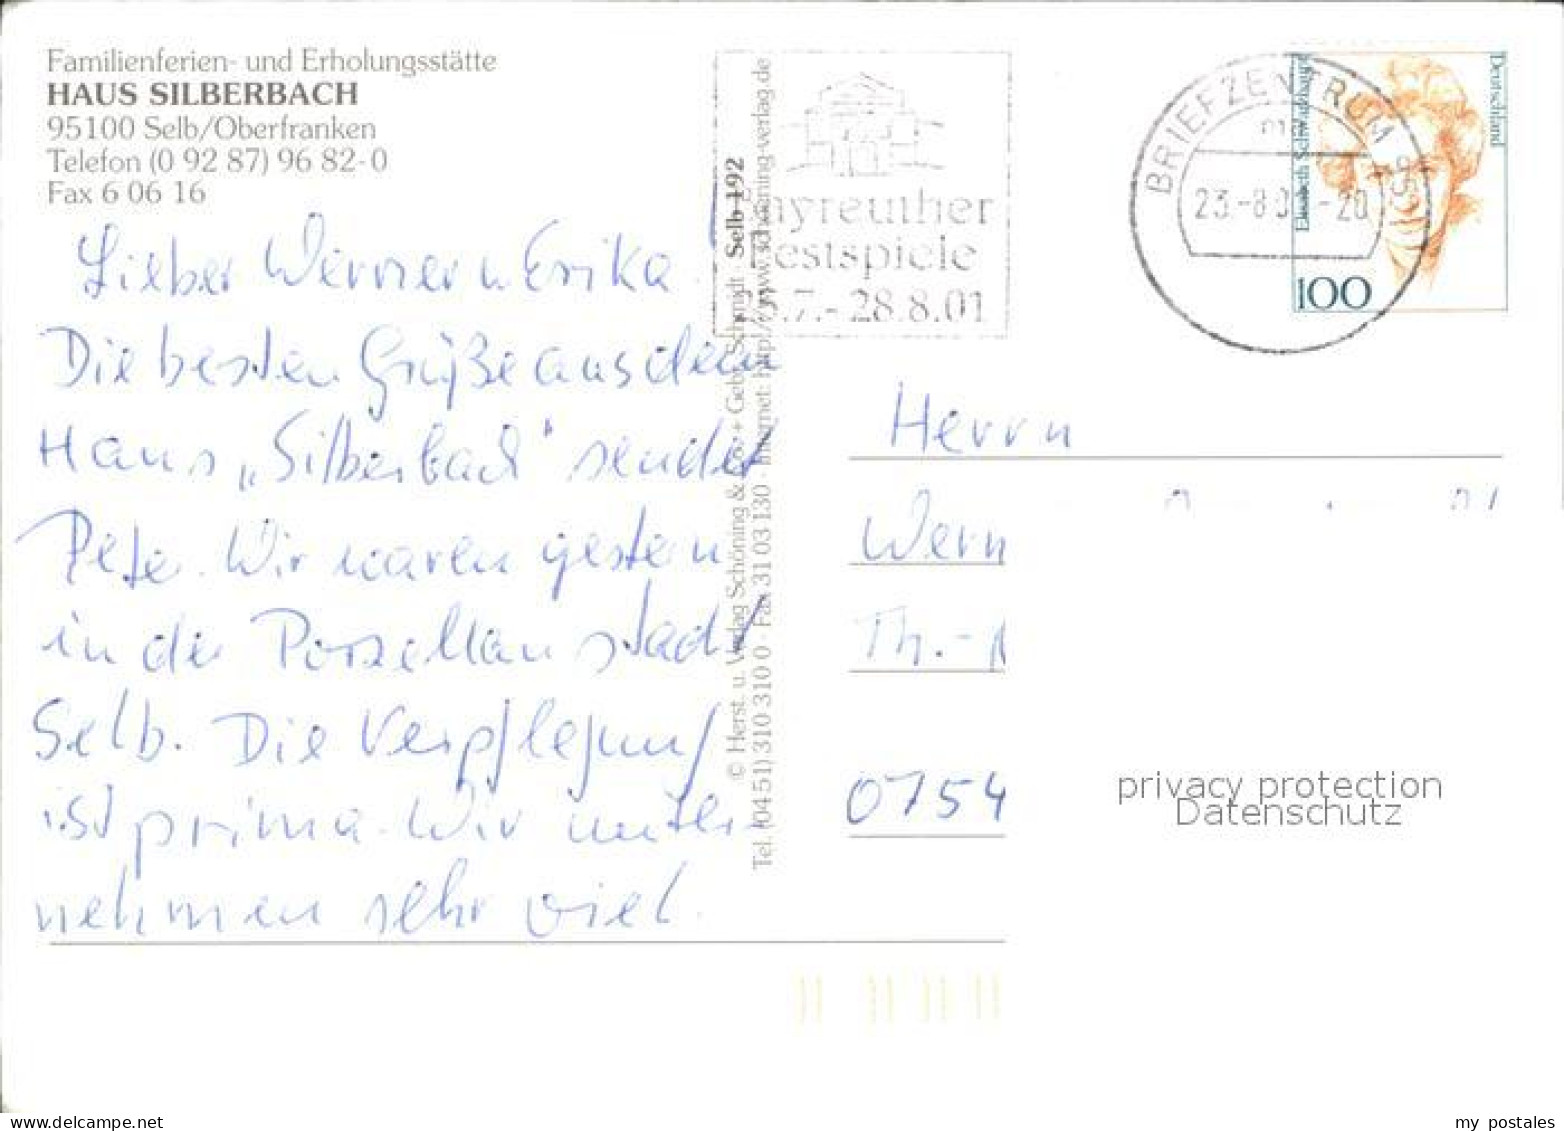 Familienferien- und Erholungsstätte
HAUS SILBERBACH
95100 Selb/Oberfranken
Telefon (0 92 87) 96 82-0
Fax 6 06 16
Lieber Werner u Erika!
Die besten Grüße aus dem
Haus „Silberbach" sendet
Pete. Wir waren gestern
in der Porzellanstadt
Selb. Die Verpflegung
ist prima. Wir unter-
nehmen sehr viel.
© Herst. u. Verlag Schöning & Co. + Gebr. Schmidt · Selb 192
Tel. (04 51) 310 310 0 · Fax 31 03 130 · Internet: http://www.schoening-verlag.de
Bayreuther
Festspiele
25.7.-28.8.01
BRIEFZENTRUM 95
23.-8.0 -20
Deutschland
Elisabeth Schwarzhaupt
100
Herrn
Wern
Th.-
0754
privacy protection
Datenschutz
www.delcampe.net
my postales